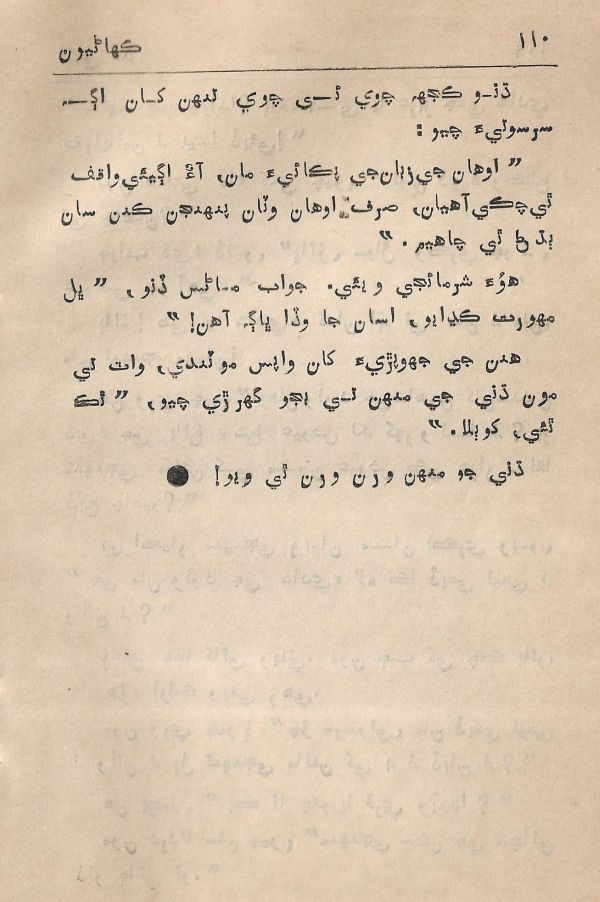 ١١٠
ڪهاڻيون
ڏنـو ڪجهہ چوي ئـي چوي تنهن کـان اڳـ
سرسوتيءَ چيو :
” اوهان جي زبان جي پڪائيءَ مان، آءٌ اڳيئي واقف
ٿي چڪي آهيان، صرف اوهان وٽان پنهنجن ڪنن سان
ٻڌڻ ٿي چاهيم . “
هوءَ شرمائجي ويئي. جواب مـاڻس ڏنو، ” ڀل
مهورت ڪڍايو، اسان جا وڏا ڀاڳہ آهن! “
هنن جي جهوپڙيءَ کان واپس موٽندي، واٽ تي
مون ڏني جي منهن تـي ٻجو گهرڙي چيو، ” ٿڪ
ٿئي، کوٻلا. “
ڏني جو منهن ورن ورن ٿي ويو!